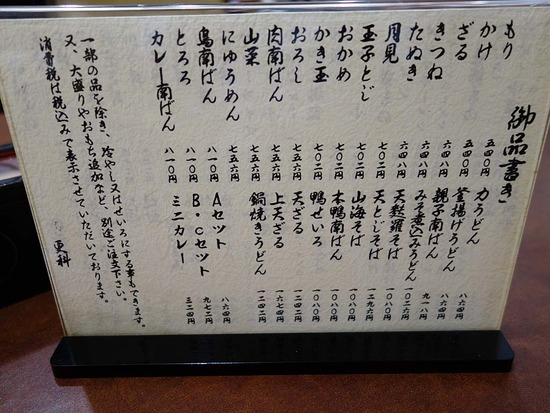 御品書き
もり 五四〇円
かけ 五四〇円
ざる 六四八円
きつね 六四八円
たぬき 六四八円
月見 六四八円
玉子とじ 七〇二円
おかめ 七〇二円
かき玉 七〇二円
おろし 七五六円
肉南ばん 七五六円
山菜 七五六円
にゅうめん 七五六円
鳥南ばん 八一〇円
とろろ 八一〇円
カレー南ばん 八一〇円
力うどん 八六四円
釜揚げうどん 八六四円
親子南ばん 九一八円
みそ煮込みうどん 一〇二六円
天麩羅そば 一〇八〇円
天とじそば 一二九六円
山海そば 一〇八〇円
本鴨南ばん 一〇八〇円
鴨せいろ 一〇八〇円
天ざる 一〇八〇円
上天ざる 一六七四円
鍋焼きうどん 一二四二円
Aセット 八六四円
B・Cセット 九七二円
ミニカレー 三二四円
一部の品を除き、冷やし又はせいろにする事もできます。
又、大盛りやおもち追加など、別途ご注文下さい。
消費税は税込みで表示させていただいております。
更科